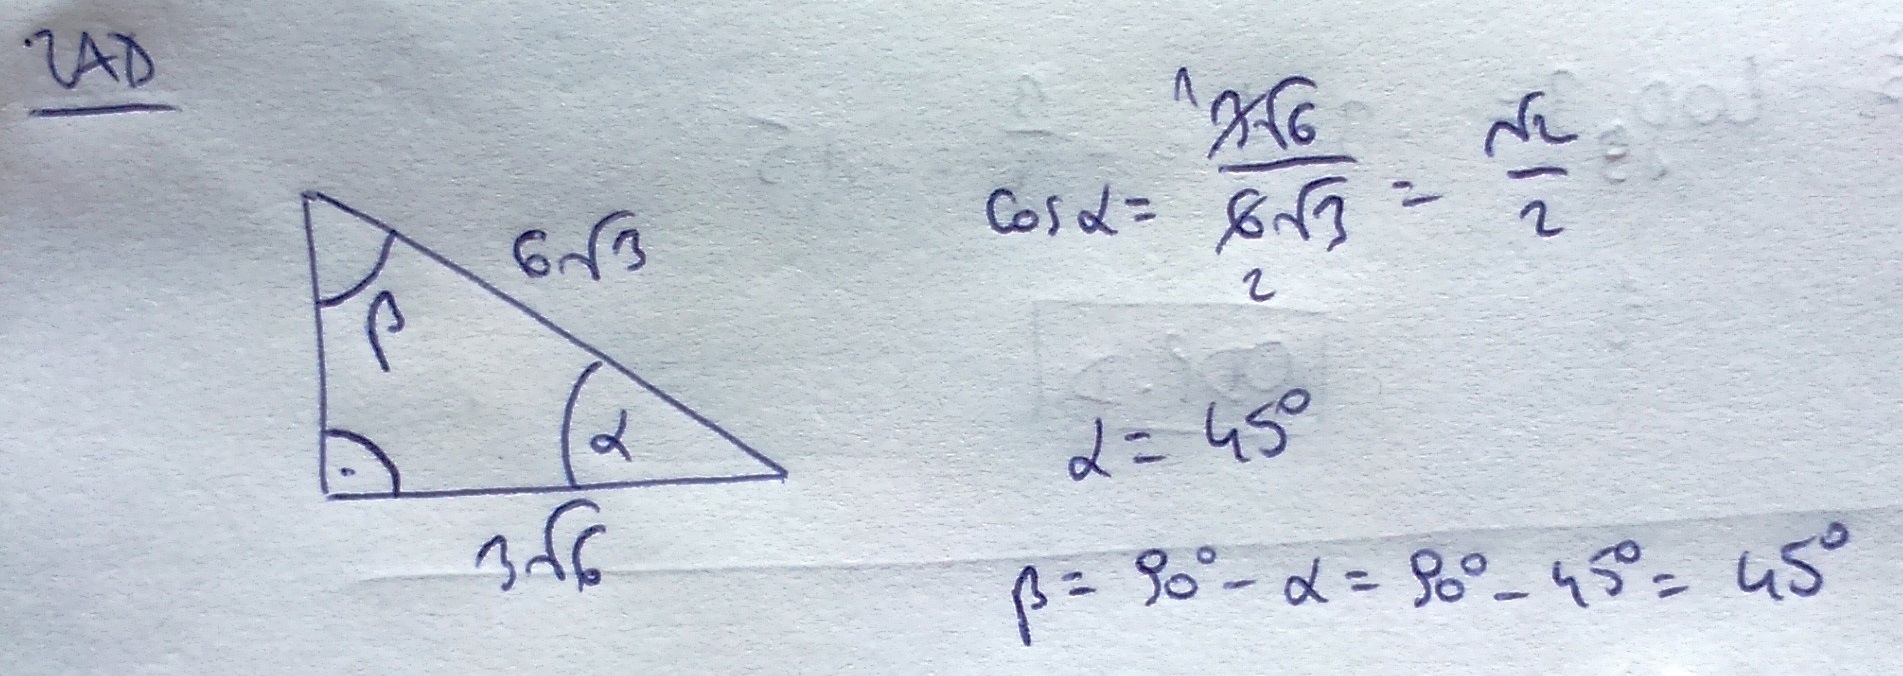 ZAD
6√3
β
α
3√6
cos α = 3√6 / 6√3 = √2 / 2
1
2
α = 45°
β = 90° - α = 90° - 45° = 45°